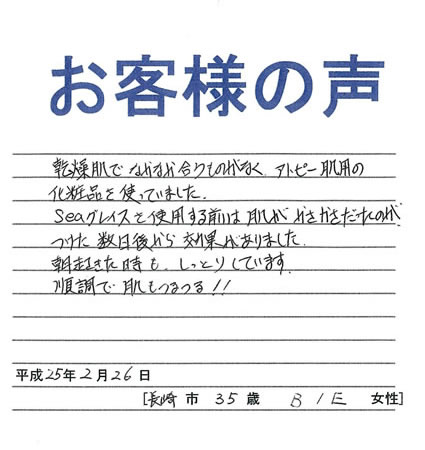 お客様の声
乾燥肌で なかなか合うものがなく アトピー肌用の
化粧品を使っていました.
Seaグレイスを使用する前は肌がかさかさだったのが
つけた数日後から効果がありました.
朝起きた時も しっとりしています.
順調で肌もつるつる!!
平成25年2月26日
[長崎 市 35 歳 B I E 女性]